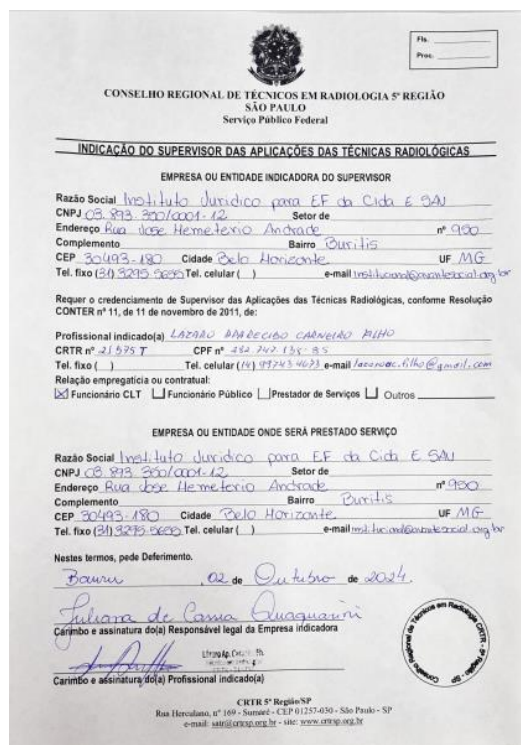 Fls.
Proc.
CONSELHO REGIONAL DE TÉCNICOS EM RADIOLOGIA 5ª REGIÃO
SÃO PAULO
Serviço Público Federal
INDICAÇÃO DO SUPERVISOR DAS APLICAÇÕES DAS TÉCNICAS RADIOLÓGICAS
EMPRESA OU ENTIDADE INDICADORA DO SUPERVISOR
Razão Social Instituto Juridico para EF da Cida E SAU
CNPJ 03.893.350/0001-12 Setor de
Endereço Rua Jose Hemeterio Andrade nº 950
Complemento Bairro Buritis
CEP 30493-180 Cidade Belo Horizonte UF MG
Tel. fixo (31) 3295-5655 Tel. celular ( ) e-mail
Requer o credenciamento de Supervisor das Aplicações das Técnicas Radiológicas, conforme Resolução
CONTER nº 11, de 11 de novembro de 2011, de:
Profissional indicado(a) LAZARO APARECIDO CARNEIRO FILHO
CRTR nº 21575 T CPF nº
Tel. fixo ( ) Tel. celular (14) 99743 4673 e-mail
Relação empregatícia ou contratual:
Funcionário CLT Funcionário Público Prestador de Serviços Outros
EMPRESA OU ENTIDADE ONDE SERÁ PRESTADO SERVIÇO
Razão Social Instituto Juridico para EF da Cida E SAU
CNPJ 03.893.350/0001-12 Setor de
Endereço Rua Jose Hemeterio Andrade nº 950
Complemento Bairro Buritis
CEP 30493-180 Cidade Belo Horizonte UF MG
Tel. fixo (31) 3295-5655 Tel. celular ( ) e-mail
Nestes termos, pede Deferimento.
Bauru, 02 de Outubro de 2024
Juliana de Cassia Quaguarini
Carimbo e assinatura do(a) Responsável legal da Empresa indicadora
Carimbo e assinatura do(a) Profissional indicado(a)
Conselho Regional de Técnicos em Radiologia CRTR - 5ª Região - SP
CRTR 5ª Região/SP
Rua Herculano, nº 169 - Sumaré - CEP 01257-030 - São Paulo - SP
e-mail: satr@crtrsp.org.br - site: www.crtrsp.org.br